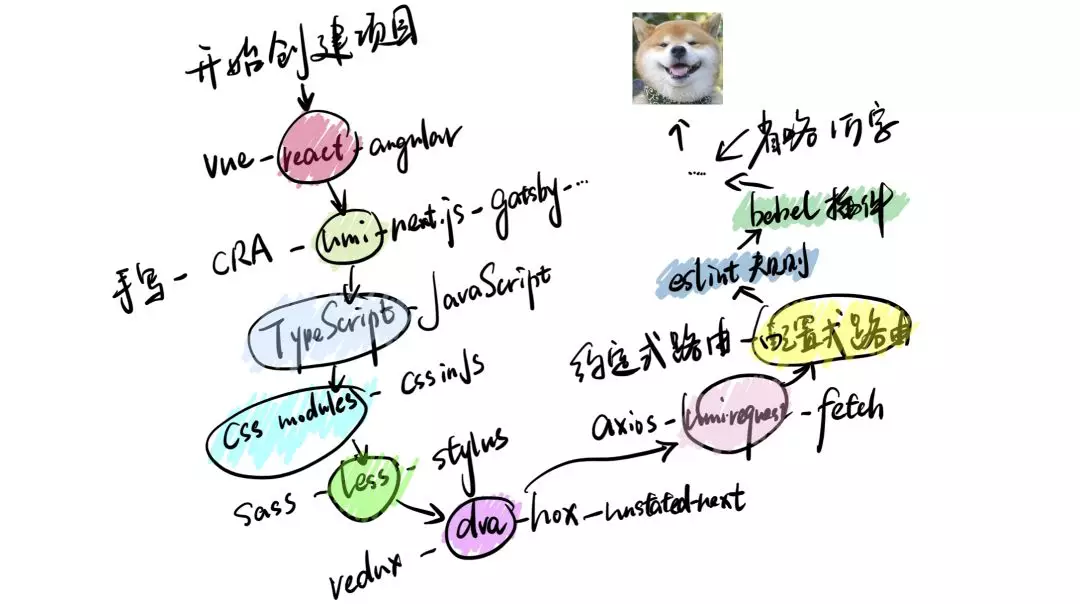 开始创建项目
vue - react - angular
手写 - CRA - umi - next.js - gatsby - ...
TypeScript - JavaScript
css modules - cssinjs
sass - less - stylus
redux - dva - hox - unstated-next
axios - umi request - fetch
约定式路由 - 配置式路由
eslint 规则
babel 插件
...... 省略1万字